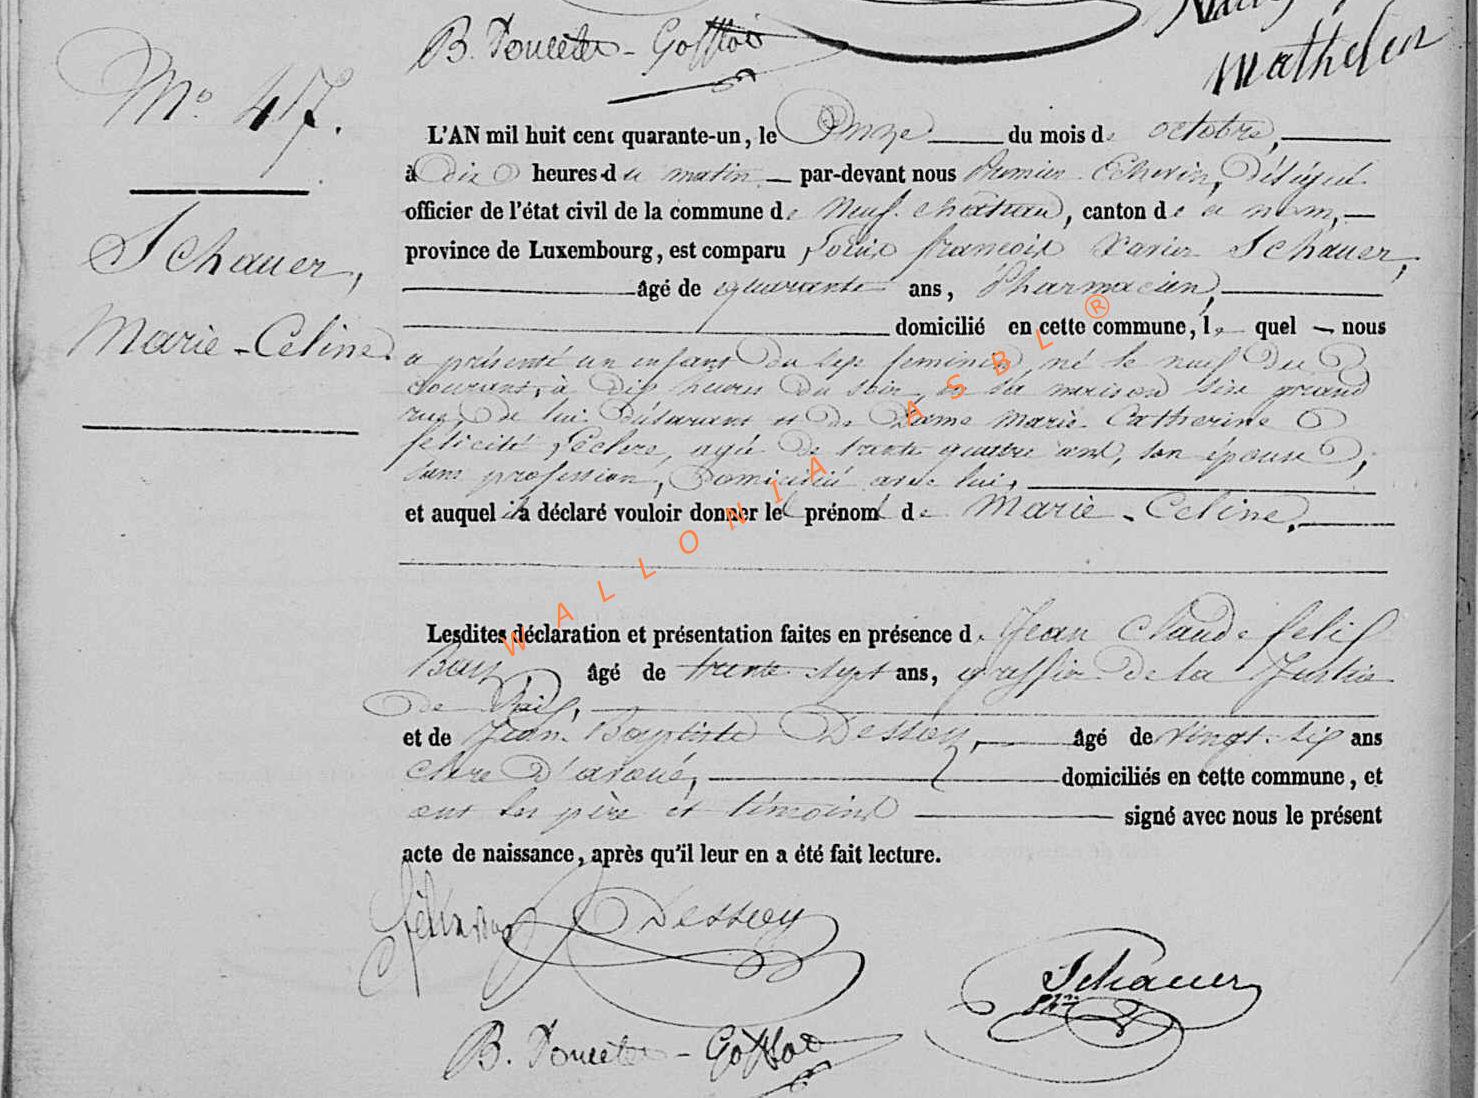 B. Poncelet - Gofflot
Mathelin
N.º 47.
Schauer,
Marie-Celine.
L'AN mil huit cent quarante-un, le Onze du mois de octobre,
à dix heures du matin par-devant nous Premier Echevin, délégué
officier de l'état civil de la commune de Neufchateau, canton de ce nom,
province de Luxembourg, est comparu Louis françois Xavier Schauer,
âgé de quarante ans, Pharmacien,
domicilié en cette commune, le quel nous
a présenté un enfant du sexe feminin, né le neuf du
courant, à dix heures du soir, en sa maison sise grand
rue, de lui déclarant et de Dame Marie Catherine
félicité Leclere, agée de trente quatre ans, son épouse,
sans profession, domiciliée avec lui,
et auquel il a déclaré vouloir donner le prénom de Marie-Celine.
Lesdites déclaration et présentation faites en présence de Jean Claude felix
âgé de trente sept ans, greffier de la Justice
de Paix,
et de Jean Baptiste Dessoy, âgé de vingt-six ans
clerc d'avoué, domiciliés en cette commune, et
ont les père et témoins signé avec nous le présent
acte de naissance, après qu'il leur en a été fait lecture.
Dessoy
Schauer
phn
B. Poncelet - Gofflot
WALLONIA ASBL ®